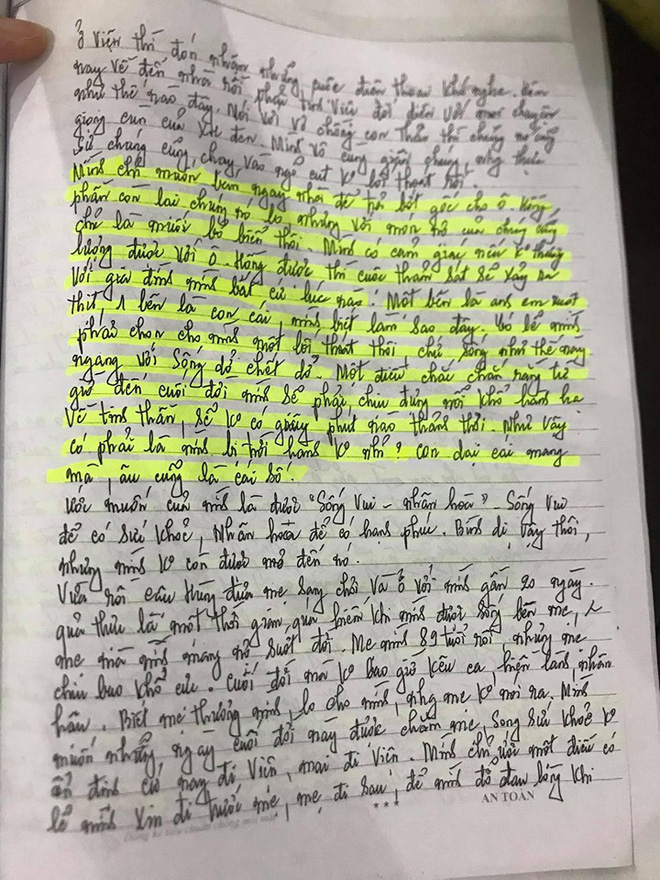 ở viện thì đón nhận những cuộc điện thoại khó nghe. Hôm
nay về đến nhà rồi phải trực tiếp đối diện với mọi chuyện
như thế nào đây. Nói với vợ chồng con Thảo thì chúng nó cũng
giọng của xã hội đen. Mình vô cùng giận chúng, nhg thực
sự chúng cũng chạy vào ngõ cụt ko lối thoát rồi.
Mình chỉ muốn bán ngay nhà để trả bớt gốc cho ô Hồng
phần còn lại chúng nó lo nhưng với món nợ của chúng cũng
chỉ là muối bỏ biển thôi. Mình có cảm giác nếu ko thương
lượng được với ô Hồng được thì cuộc thảm sát sẽ xảy ra
với gia đình mình bất cứ lúc nào. Một bên là anh em ruột
thịt, 1 bên là con cái, mình biết làm sao đây. Có lẽ mình
phải chọn cho mình một lối thoát thôi, chứ sống như thế này
ngang với sống dở chết dở. Một điều chắc chắn rằng từ
giờ đến cuối đời mình sẽ phải chịu đựng nỗi khổ hành hạ
về tinh thần, sẽ ko có giây phút nào thảnh thơi. Như vậy
có phải là mình bị trời hành ko nhỉ? con dại cái mang
mà, âu cũng là cái số.
Ước muốn của mình là được "Sống vui - nhân hoà" - Sống vui
để có sức khoẻ, Nhân hoà để có hạnh phúc. Bình dị vậy thôi,
nhưng mình ko còn được mơ đến nó.
Vừa rồi cậu Hùng đưa mẹ sang chơi và ở với mình gần 20 ngày.
quả thực là một thời gian quá hiếm khi mình được sống bên mẹ, 
mẹ mà mình mang nợ suốt đời. Mẹ mình 89 tuổi rồi, nhưng mẹ
chịu bao khổ cực. Cuối đời mà ko bao giờ kêu ca, hiền lành nhân
hậu. Biết mẹ thương mình, lo cho mình, nhg mẹ ko nói ra. Mình
muốn những ngày cuối đời này được chăm mẹ, song sức khoẻ ko
ổn định cứ nay đi viện, mai đi viện. Mình chỉ ước một điều có
lẽ mình xin đi trước mẹ, mẹ đi sau, để mình đỡ đau lòng khi
***
AN TOÀN